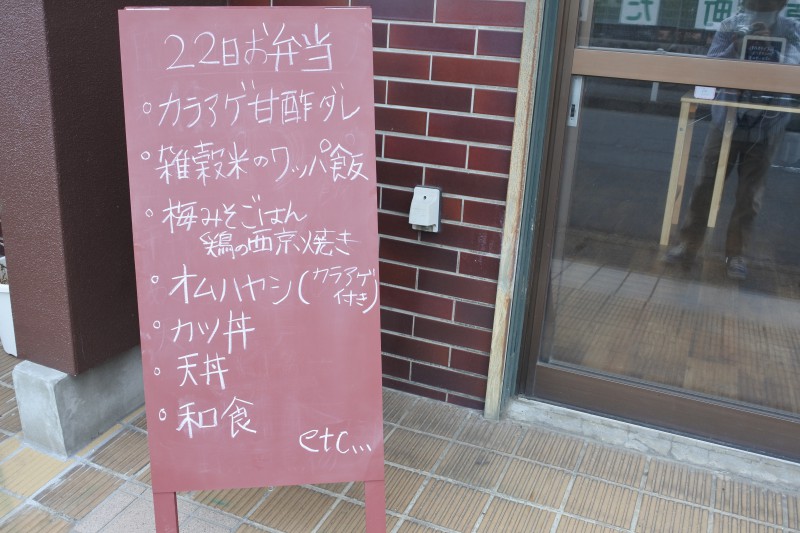 22日お弁当
○カラアゲ甘酢ダレ
○雑穀米のワッパ飯
○梅みそごはん
鶏の西京焼き
○オムハヤシ(カラアゲ
付き)
○カツ丼
○天丼
○和食
etc...
町
た